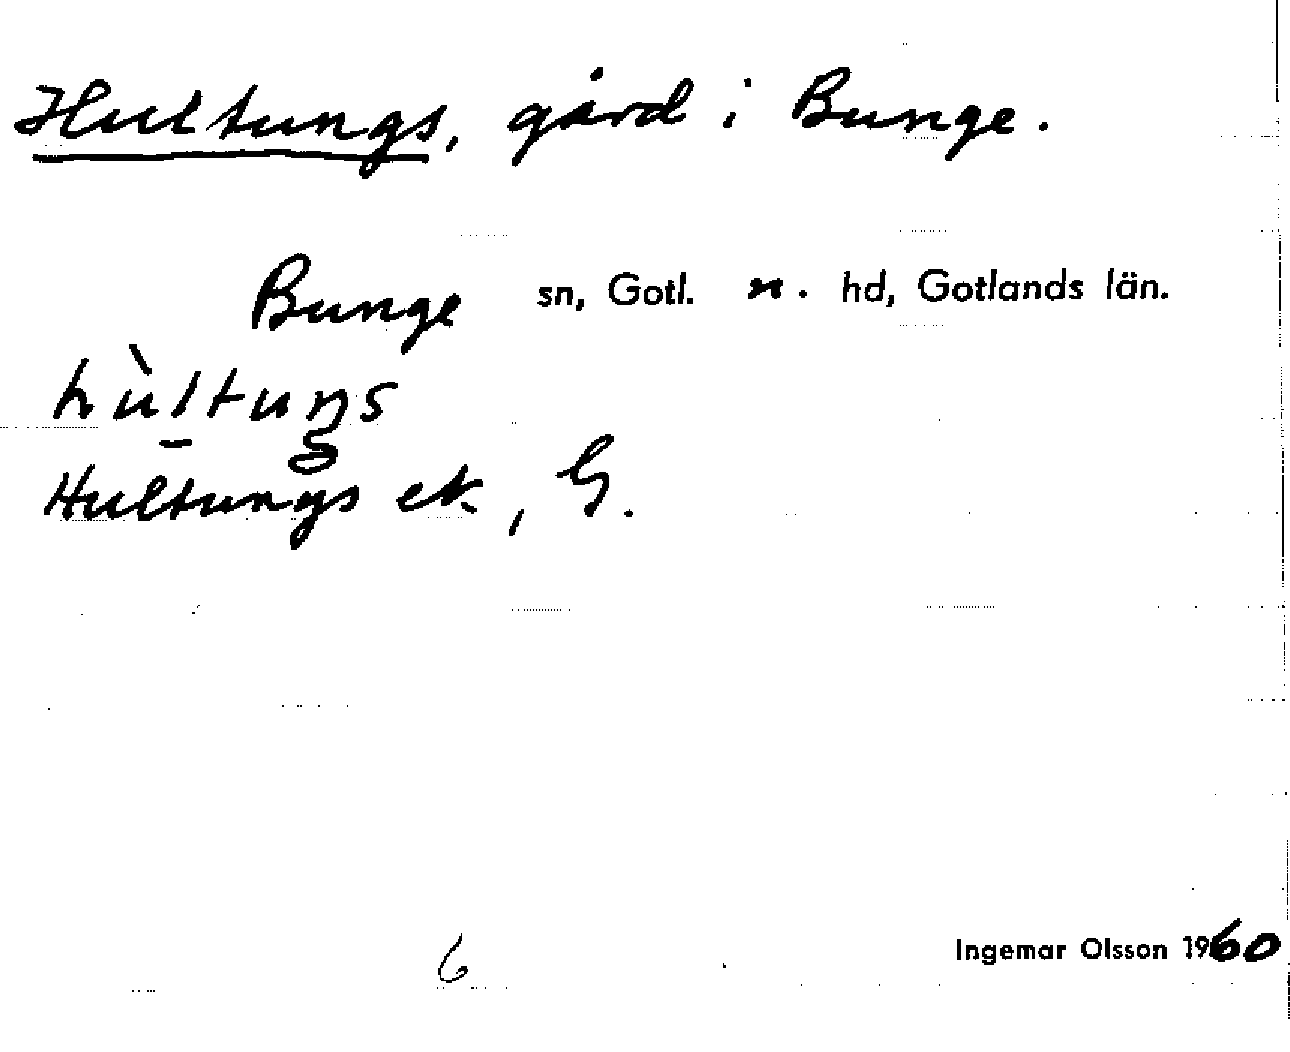 Hultungs, gård i Bunge.
Bunge sn, Gotl. n. hd, Gotlands län.
hùltuŋs
Hultungs ek, G.
6
Ingemar Olsson 1960